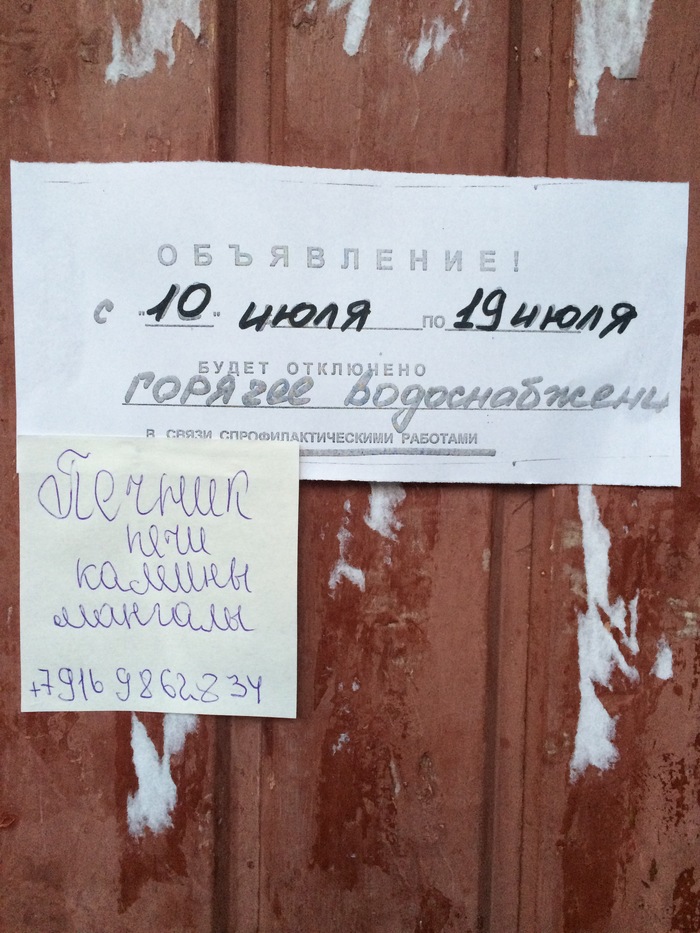 ОБЪЯВЛЕНИЕ!
с "10" июля по 19 июля
БУДЕТ ОТКЛЮЧЕНО
горячее водоснабжени
В СВЯЗИ СПРОФИЛАКТИЧЕСКИМИ РАБОТАМИ
Печник
печи
камины
мангалы
+7916 9862834